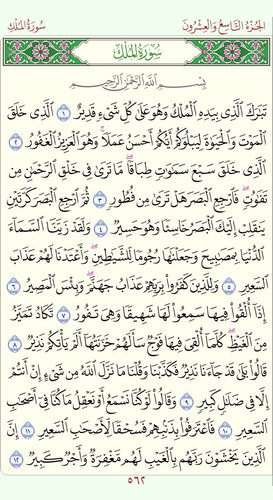 الجزء التاسع والعشرون سورة الملك
سورة الملك
بِسْمِ اللَّهِ الرَّحْمَٰنِ الرَّحِيمِ
تَبَٰرَكَ ٱلَّذِي بِيَدِهِ ٱلْمُلْكُ وَهُوَ عَلَىٰ كُلِّ شَيْءٍ قَدِيرٌ ١ ٱلَّذِي خَلَقَ
ٱلْمَوْتَ وَٱلْحَيَوٰةَ لِيَبْلُوَكُمْ أَيُّكُمْ أَحْسَنُ عَمَلًا ۚ وَهُوَ ٱلْعَزِيزُ ٱلْغَفُورُ ٢
ٱلَّذِي خَلَقَ سَبْعَ سَمَٰوَٰتٍ طِبَاقًا ۖ مَّا تَرَىٰ فِي خَلْقِ ٱلرَّحْمَٰنِ مِن
تَفَٰوُتٍ ۖ فَٱرْجِعِ ٱلْبَصَرَ هَلْ تَرَىٰ مِن فُطُورٍ ٣ ثُمَّ ٱرْجِعِ ٱلْبَصَرَ كَرَّتَيْنِ
يَنقَلِبْ إِلَيْكَ ٱلْبَصَرُ خَاسِئًا وَهُوَ حَسِيرٌ ٤ وَلَقَدْ زَيَّنَّا ٱلسَّمَآءَ
ٱلدُّنْيَا بِمَصَٰبِيحَ وَجَعَلْنَٰهَا رُجُومًا لِّلشَّيَٰطِينِ ۖ وَأَعْتَدْنَا لَهُمْ عَذَابَ
ٱلسَّعِيرِ ٥ وَلِلَّذِينَ كَفَرُوا۟ بِرَبِّهِمْ عَذَابُ جَهَنَّمَ ۖ وَبِئْسَ ٱلْمَصِيرُ ٦
إِذَآ أُلْقُوا۟ فِيهَا سَمِعُوا۟ لَهَا شَهِيقًا وَهِيَ تَفُورُ ٧ تَكَادُ تَمَيَّزُ
مِنَ ٱلْغَيْظِ ۖ كُلَّمَآ أُلْقِيَ فِيهَا فَوْجٌ سَأَلَهُمْ خَزَنَتُهَآ أَلَمْ يَأْتِكُمْ نَذِيرٌ ٨
قَالُوا۟ بَلَىٰ قَدْ جَآءَنَا نَذِيرٌ فَكَذَّبْنَا وَقُلْنَا مَا نَزَّلَ ٱللَّهُ مِن شَيْءٍ إِنْ أَنتُمْ
إِلَّا فِي ضَلَٰلٍ كَبِيرٍ ٩ وَقَالُوا۟ لَوْ كُنَّا نَسْمَعُ أَوْ نَعْقِلُ مَا كُنَّا فِيٓ أَصْحَٰبِ
ٱلسَّعِيرِ ١٠ فَٱعْتَرَفُوا۟ بِذَنۢبِهِمْ فَسُحْقًا لِّأَصْحَٰبِ ٱلسَّعِيرِ ١١ إِنَّ
ٱلَّذِينَ يَخْشَوْنَ رَبَّهُم بِٱلْغَيْبِ لَهُم مَّغْفِرَةٌ وَأَجْرٌ كَبِيرٌ ١٢
٥٦٢